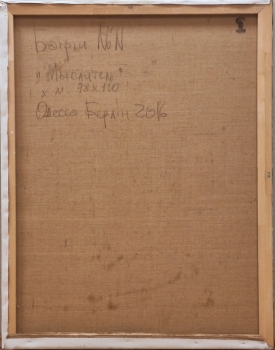 Бояры №N
"Мыслитель"
х м. 98х120
Одесса Берлін 2016